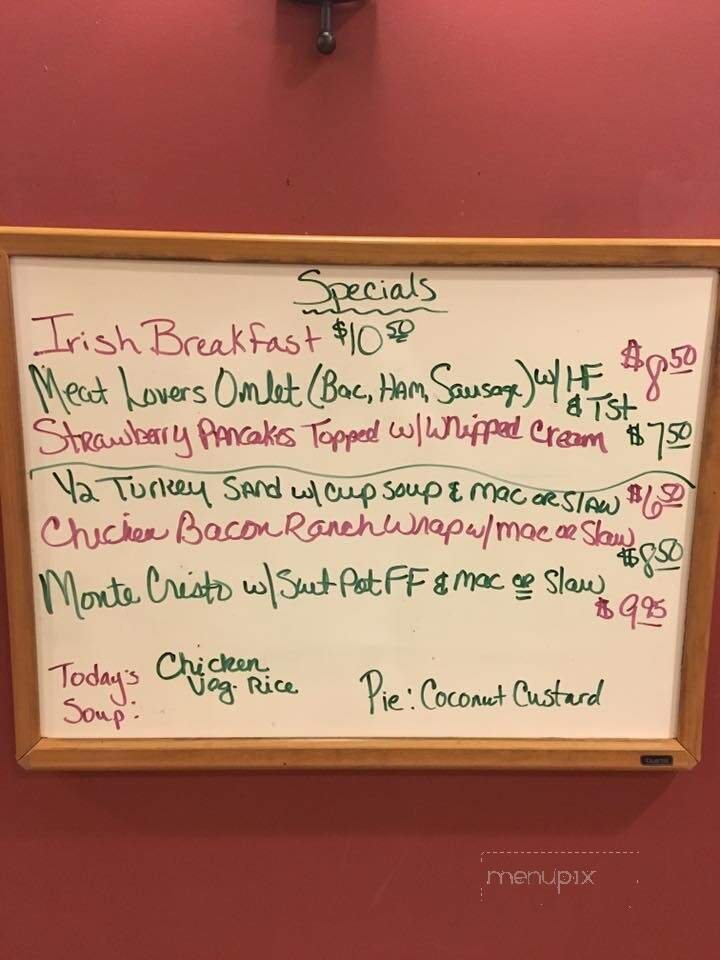 Specials
Irish Breakfast $10 50
Meat Lovers Omlet (Bac, Ham, Sausage) w/ HF & TSt $8 50
Strawberry Pancakes Topped w/ Whipped Cream $7 50
1/2 Turkey Sand w/ cup soup & mac or Slaw $6 50
Chicken Bacon Ranch Wrap w/ mac or Slaw $8 50
Monte Cristo w/ Swt Pot FF & mac or Slaw $9 95
Today's Soup: Chicken Veg. Rice
Pie: Coconut Custard
menupix